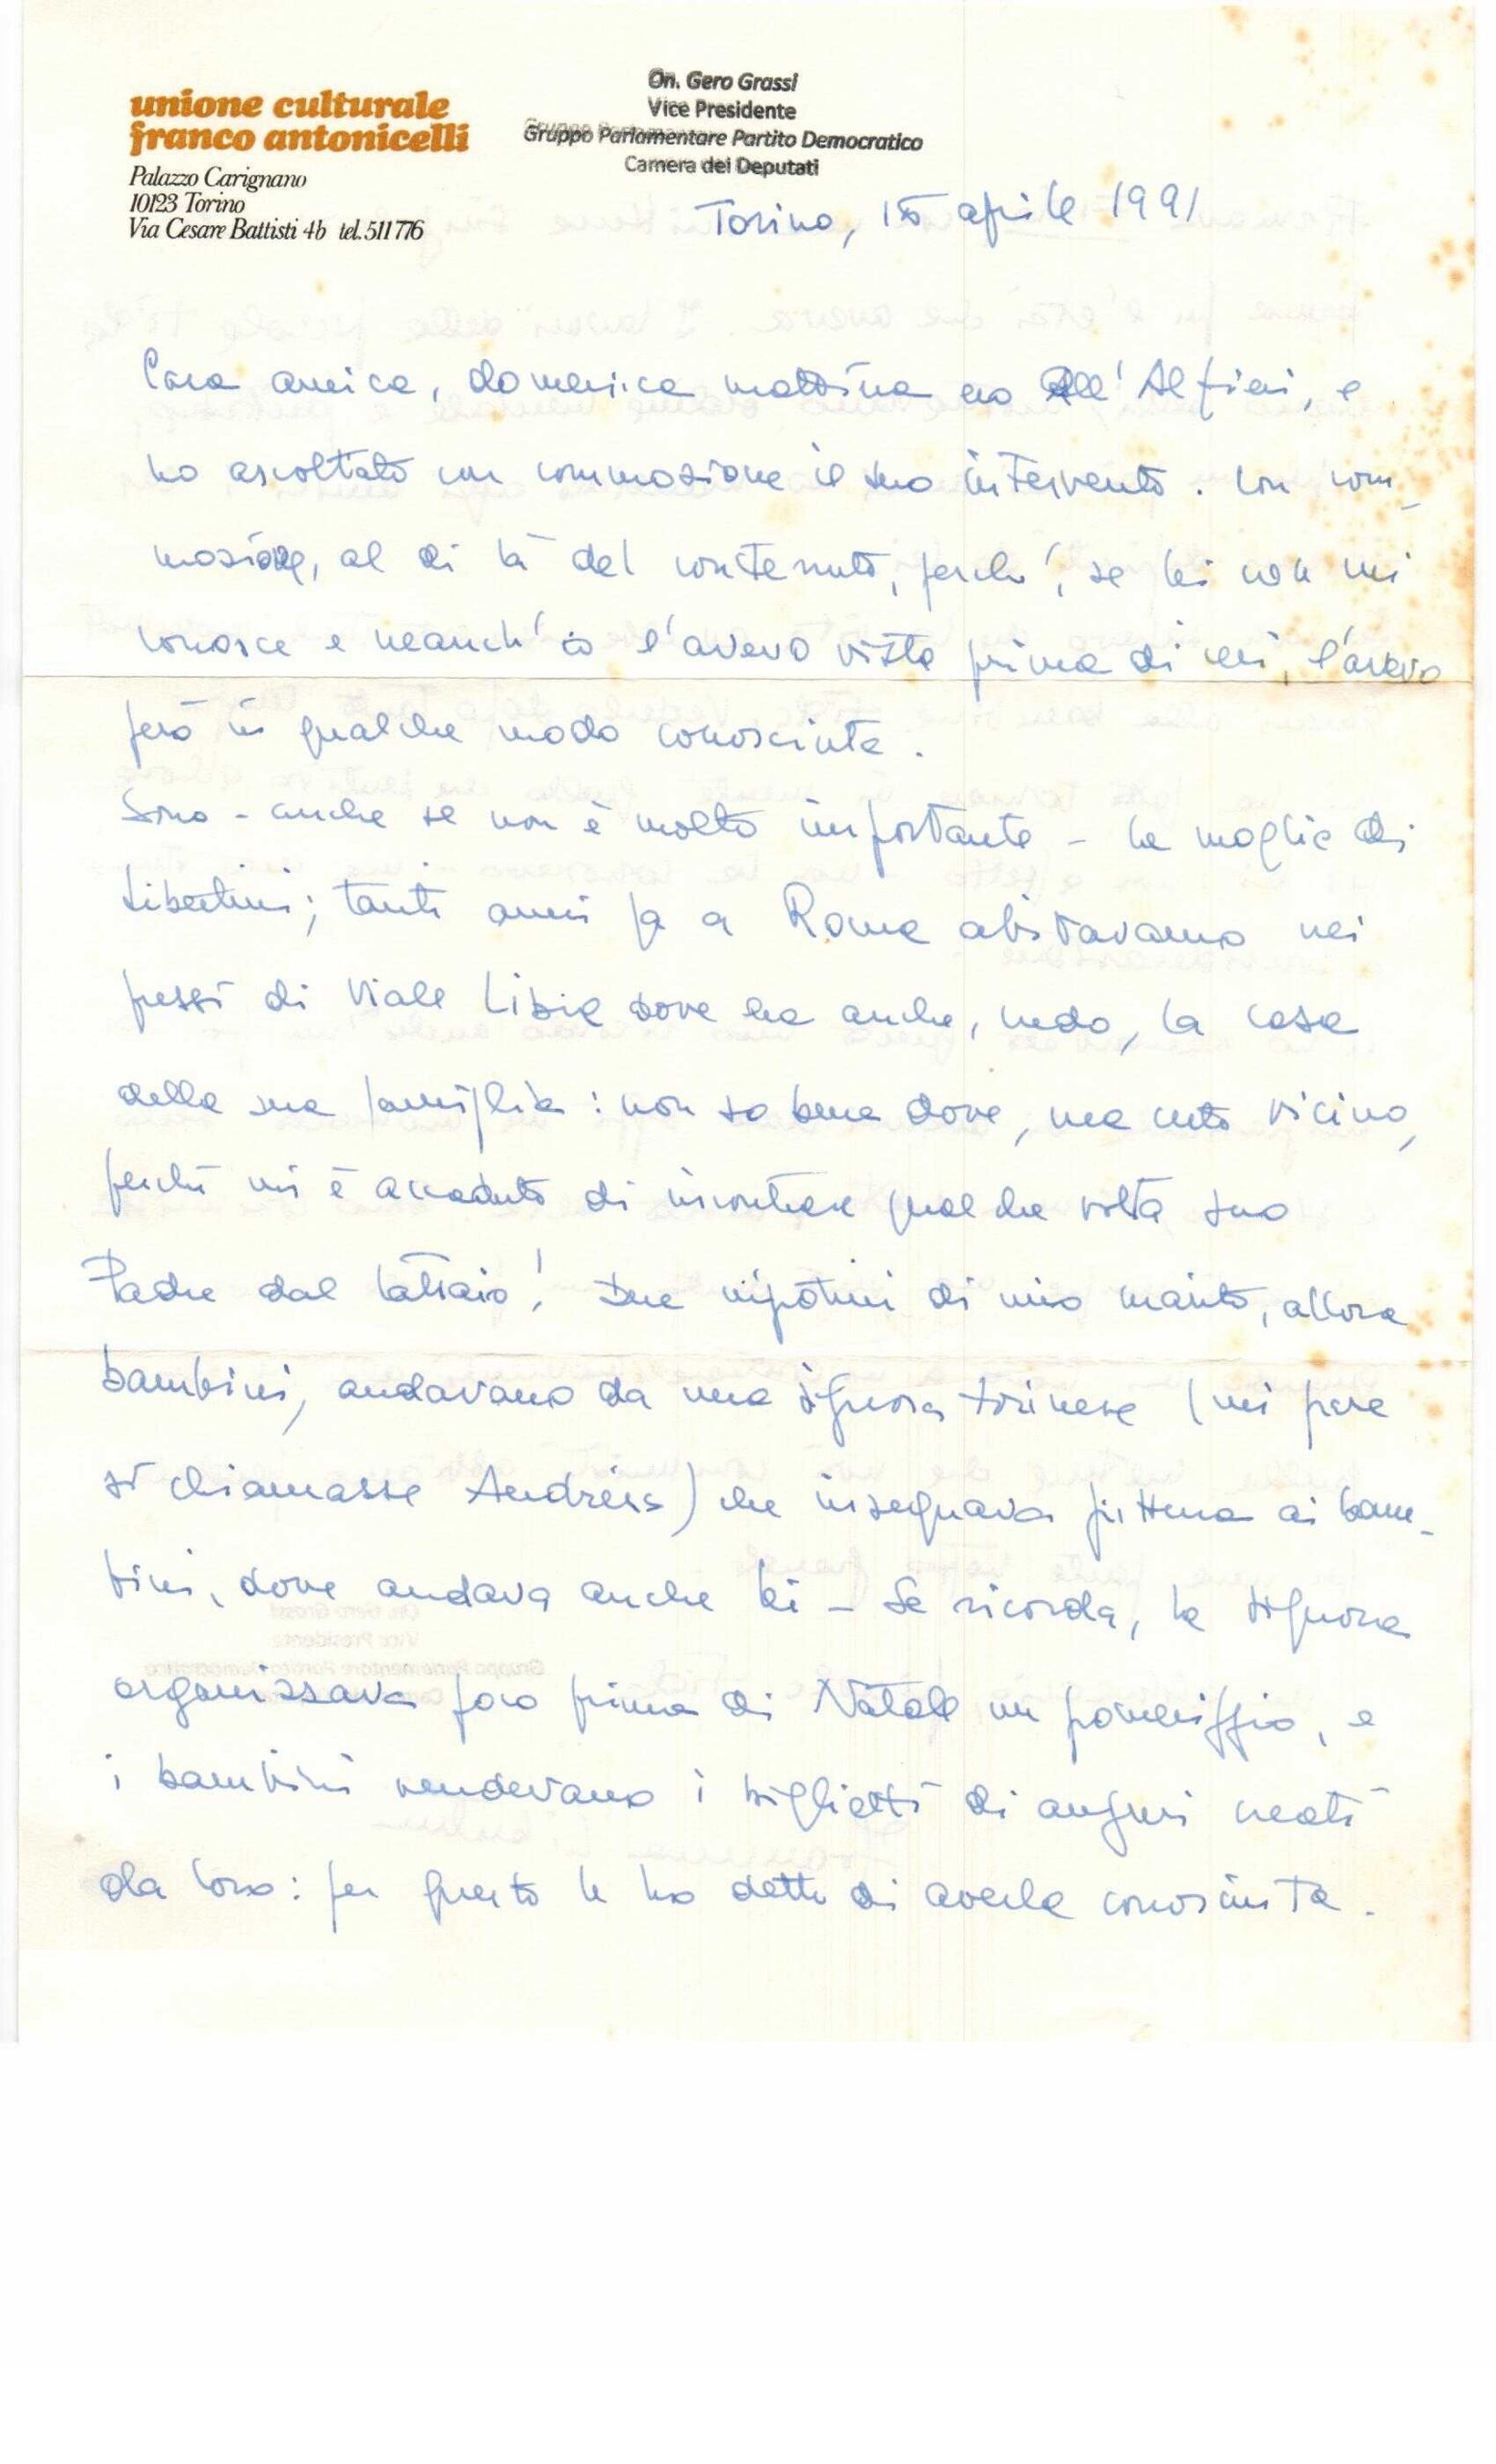 unione culturale
franco antonicelli
Palazzo Carignano
10123 Torino
Via Cesare Battisti 4b tel. 511776
On. Gero Grassi
Vice Presidente
Gruppo Parlamentare Partito Democratico
Camera dei Deputati
Torino, 15 aprile 1991
Cara amica, domenica mattina ero all'Alfieri, e
ho ascoltato con commozione il suo intervento. Con com-
mozione, al di là del contenuto, perché, se lei non mi
conosce e neanch'io l'avevo vista prima di ieri, l'avevo
però in qualche modo conosciuta.
Sono - anche se non è molto importante - la moglie di
Libertini; tanti anni fa a Roma abitavamo nei
pressi di Viale Libia dove era anche, credo, la casa
della sua famiglia: non so bene dove, ma certo vicino,
perché mi è accaduto di incontrare qualche volta suo
Padre dal lattaio! Due nipotini di mio marito, allora
bambini, andavano da una signora torinese (mi pare
si chiamasse Andreis) che insegnava pittura ai bam-
bini, dove andava anche lei - Se ricorda, la signora
organizzava poco prima di Natale un pomeriggio, e
i bambini vendevano i biglietti di auguri creati
da loro: per questo le ho detto di averla conosciuta.